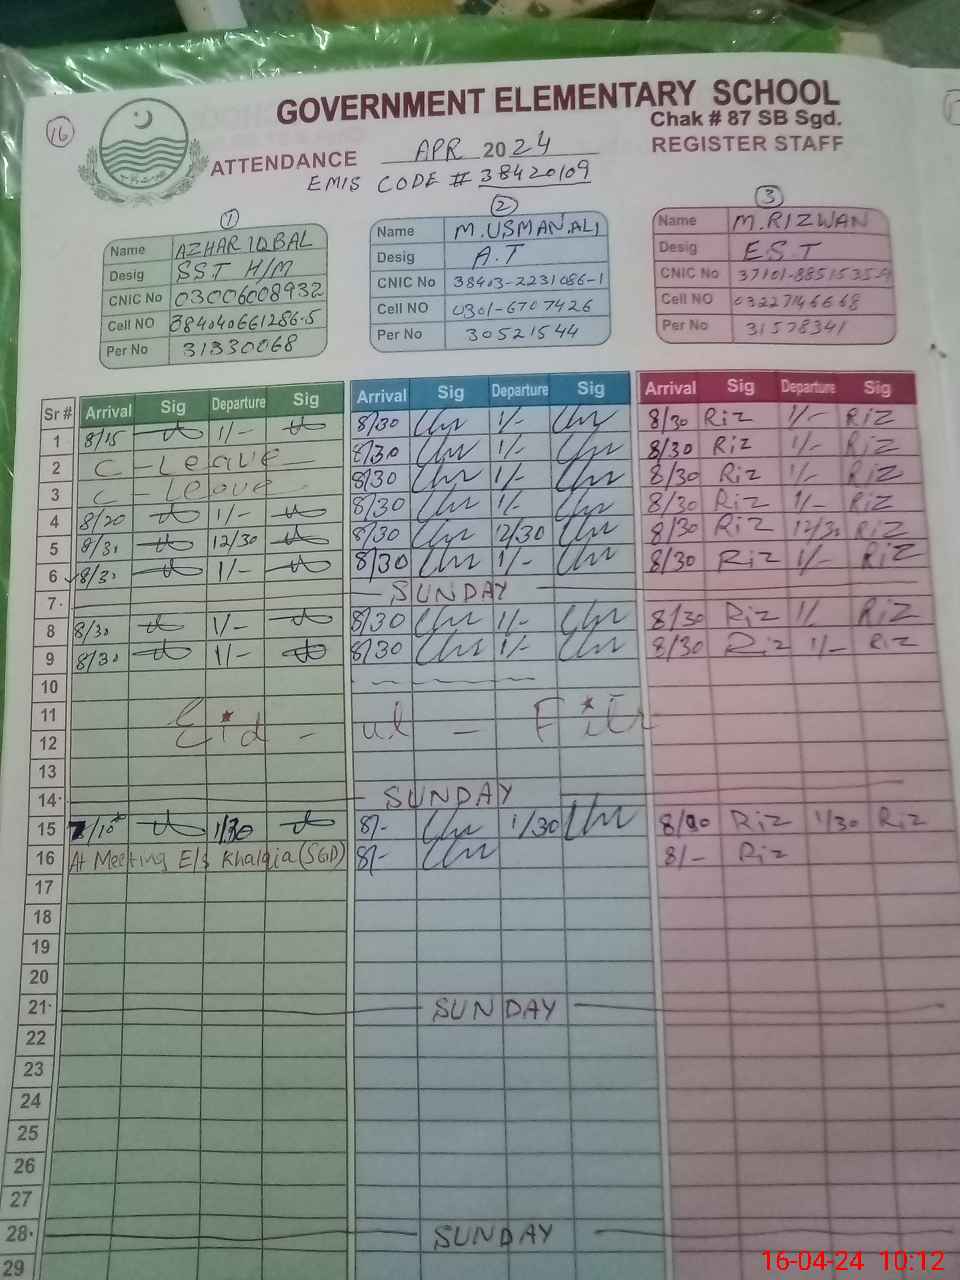 16
GOVERNMENT ELEMENTARY SCHOOL
Chak # 87 SB Sgd.
ATTENDANCE APR 2024 REGISTER STAFF
EMIS CODE # 38420109
1 2 3
Name AZHAR IQBAL
Desig SST H/M
CNIC No 03006008932
Cell NO 3840406612865
Per No 31330068
Name M.USMAN ALI
Desig A.T
CNIC No 38403-2231086-1
Cell NO 0301-6707426
Per No 30521544
Name M.RIZWAN
Desig EST
CNIC No 37101-8851535-9
Cell NO 03227146668
Per No 31578341
Sr # Arrival Sig Departure Sig Arrival Sig Departure Sig Arrival Sig Departure Sig
1 8/15 1/- 8/30 1/- 8/30 Riz 1/- Riz
2 C-Leave 8/30 1/- 8/30 Riz 1/- Riz
3 C-Leave 8/30 1/- 8/30 Riz 1/- Riz
4 8/20 1/- 8/30 1/- 8/30 Riz 1/- Riz
5 8/30 12/30 8/30 12/30 8/30 Riz 12/30 Riz
6 8/30 1/- 8/30 1/- 8/30 Riz 1/- Riz
7 SUNDAY
8 8/30 1/- 8/30 1/- 8/30 Riz 1/- Riz
9 8/30 1/- 8/30 1/- 8/30 Riz 1/- Riz
10
11 Eid - ul - Fitr
12
13
14 SUNDAY
15 1/30 8/- 1/30 Riz 1/30 Riz
16 At Meeting E/S Khalqia (SGD) 8/- 8/- Riz
17
18
19
20
21 SUNDAY
22
23
24
25
26
27
28 SUNDAY
29
16-04-24 10:12